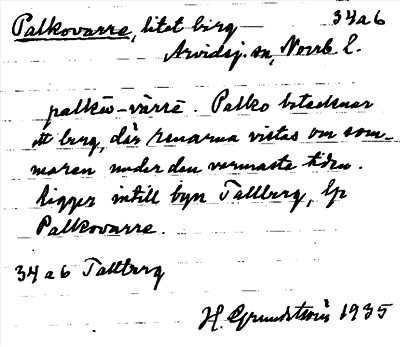 Palkovarre, litet berg 34a6
Arvidsj. sn, Norrb. l.
palkē-vārrē. Palko betecknar
ett berg, där renarna vistas om som-
maren under den varmaste tiden.
Ligger intill byn Tallberg, lp
Palkovarre.
34a6 Tallberg
H. Grundström 1935